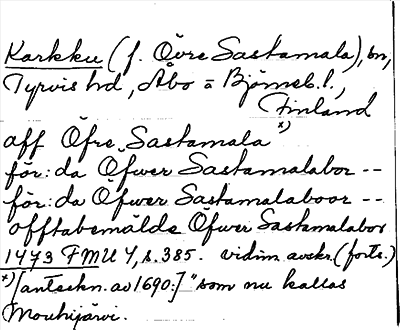 Karkku (f. Övre Sastamala), sn,
Tyrvis hd, Åbo o Björneb. l.,
Finland
aff Öfre Sastamala x)
för: da Öfwer Sastamalabor --
för: da Öfwer Sastamalaboor --
offtabemälde Öfwer Sastamalabor
1473 FMU 4, s. 385. vidim. avskr. (forts.)
x) [anteckn. av 1690:] "som nu kallas
Mouhijärvi.